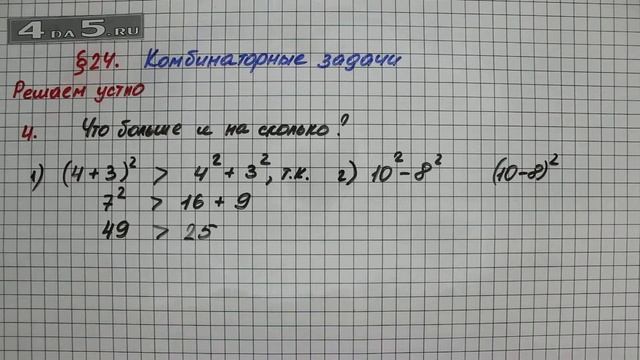 4 ДА 5.RU
§24. Комбинаторные задачи
Решаем устно
4. Что больше и на сколько?
1) (4+3)² > 4²+3², т.к. 2) 10²-8² (10-8)²
7² > 16+9
49 > 25